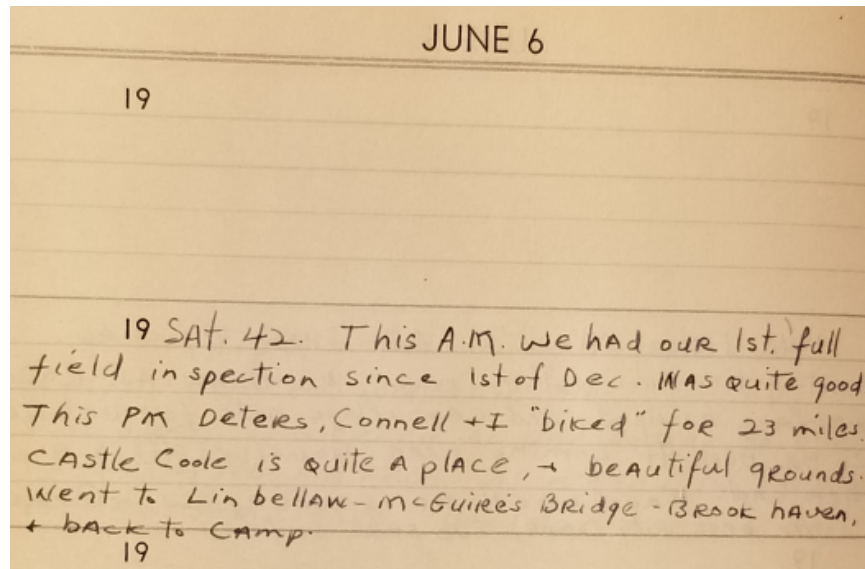 JUNE 6
19
19 SAt. 42. This A.M. we hAd ouR 1st. full
field inspection since 1st of Dec. WAs quite good
This PM Deters, Connell + I "biked" for 23 miles.
CAstle Coole is quite A plAce, + beAutiful gRounds.
Went to Linbellaw - McGuiRe's BRidge - BRook haven,
+ bAck to CAmp.
19